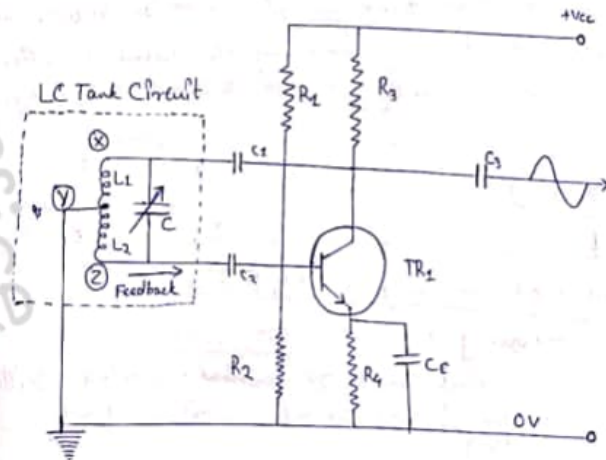 +Vcc
LC Tank Circuit
R1
R3
X
C1
C3
L1
Y
C
L2
Z
Feedback
C2
TR1
R2
R4
CE
0V